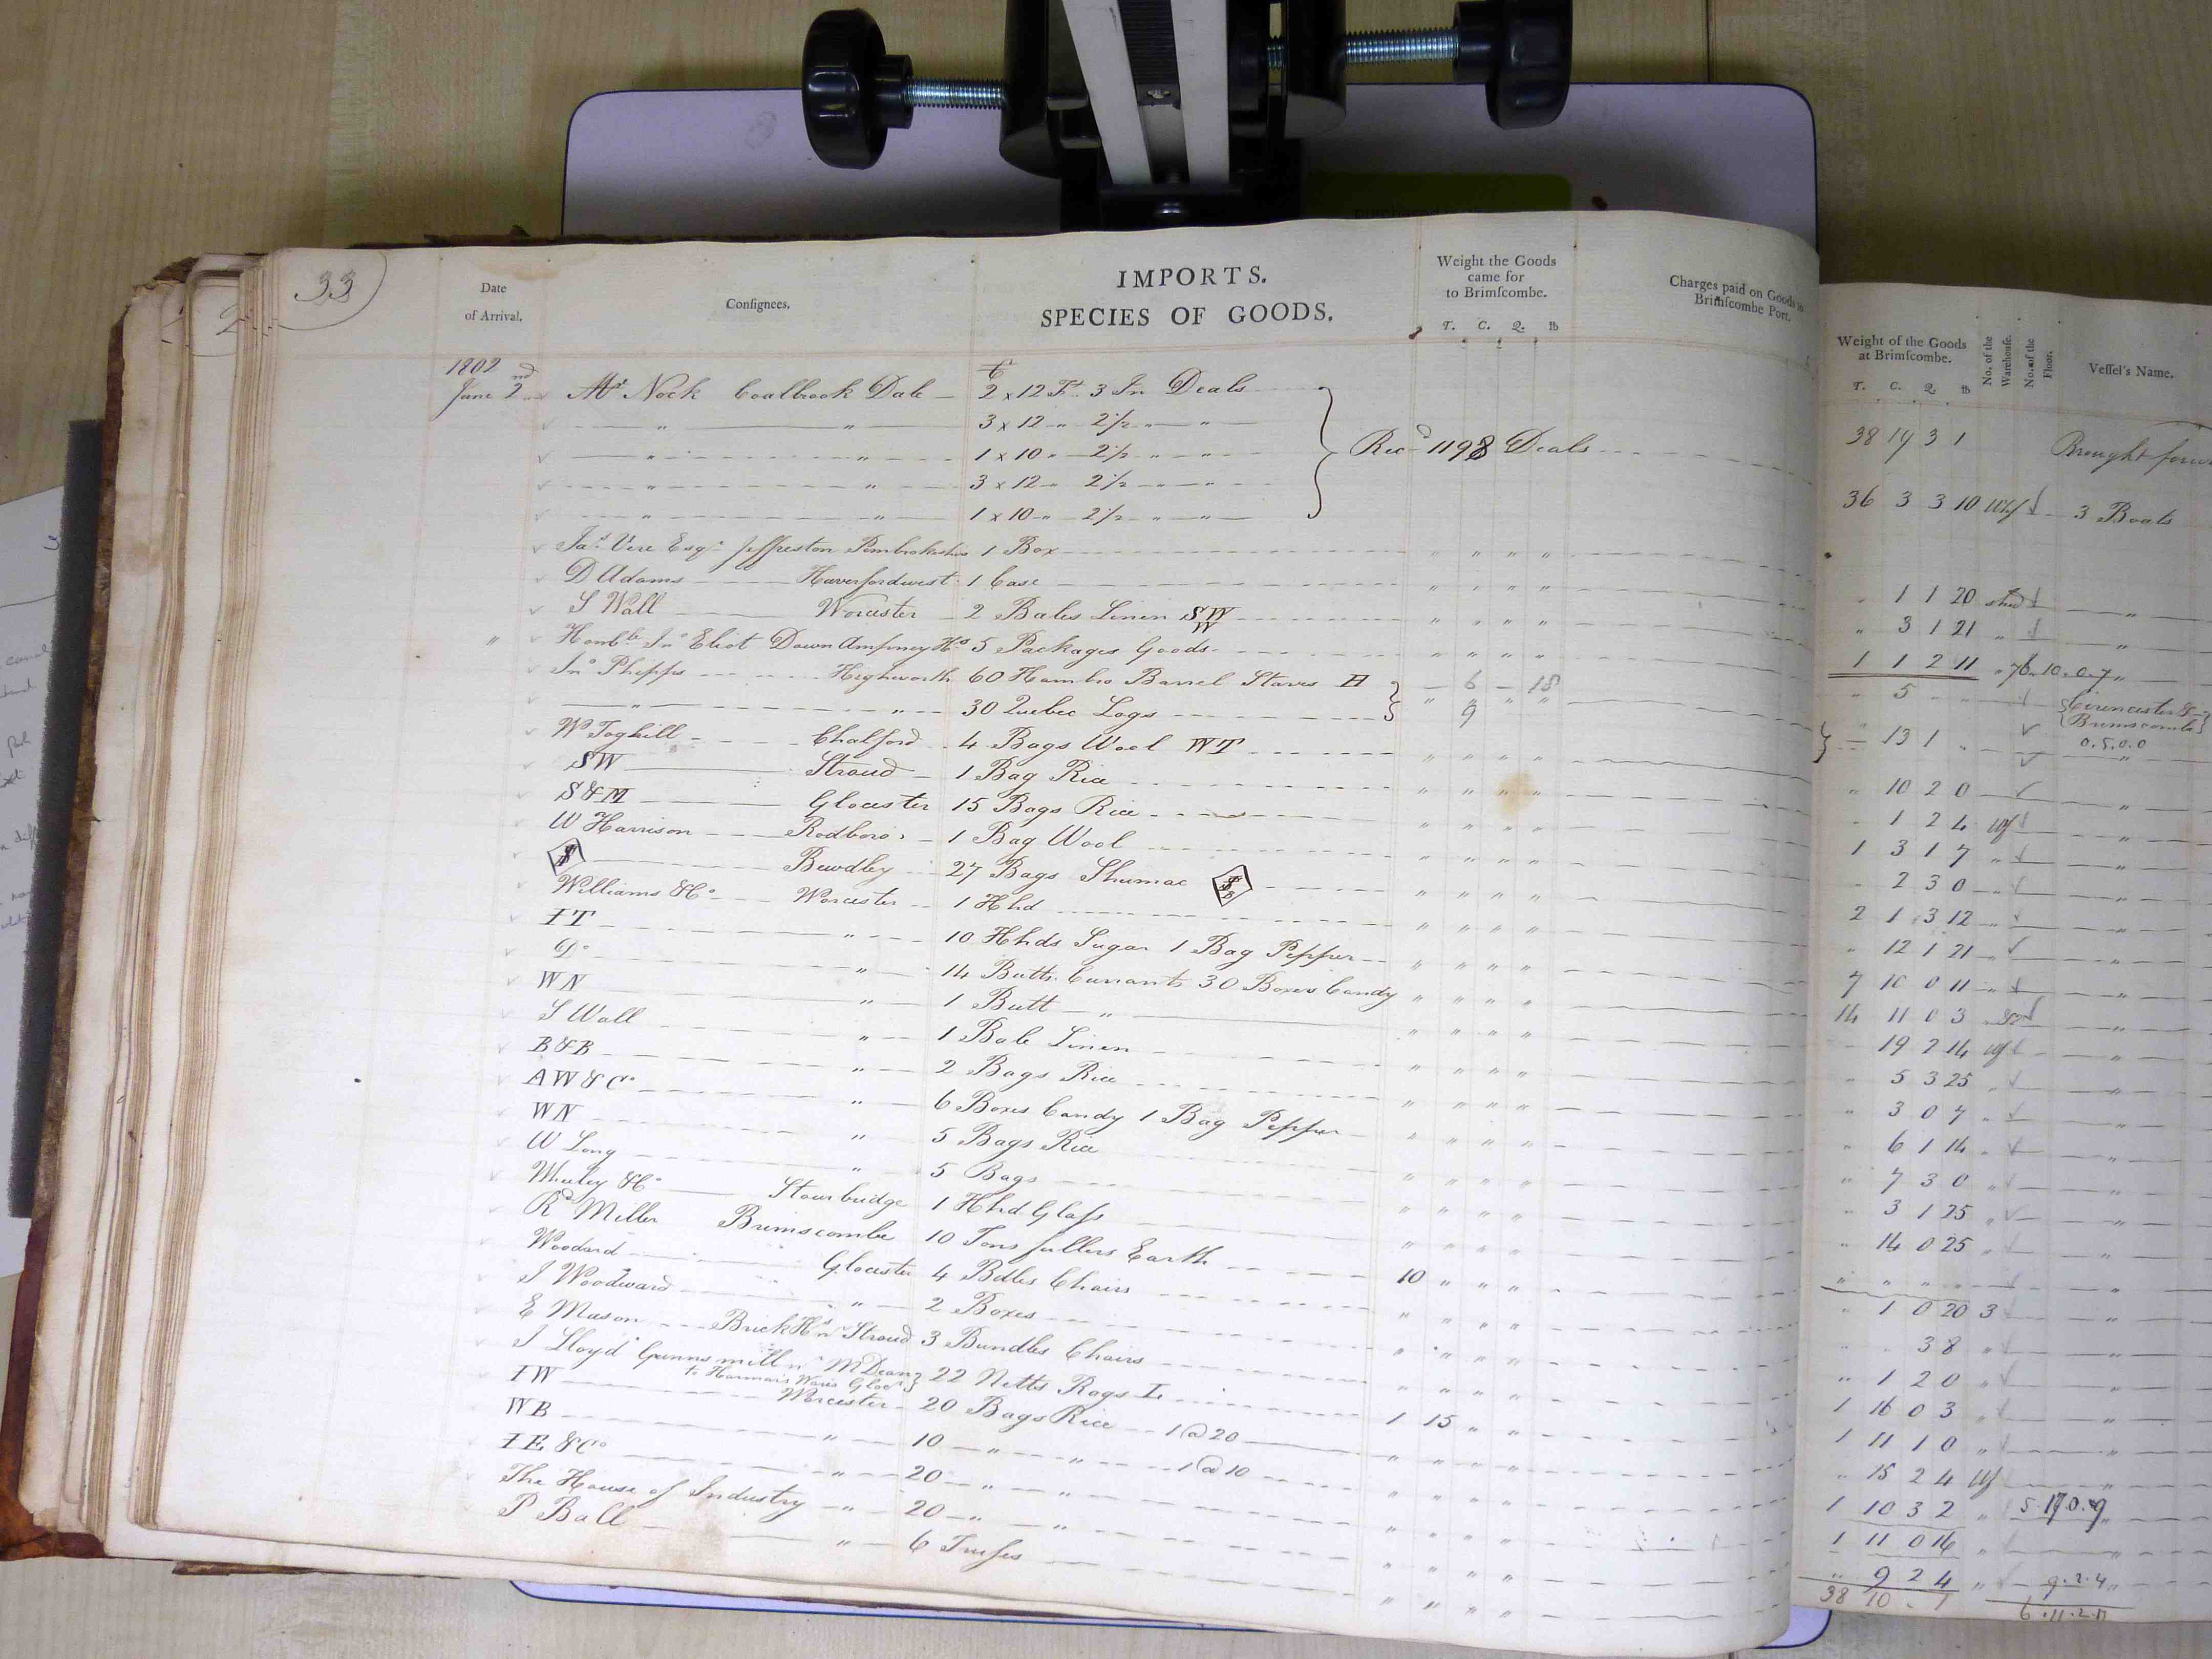 33
Date of Arrival.
Consignees.
IMPORTS.
SPECIES OF GOODS.
Weight the Goods came for to Brimscombe.
T. C. Q. lb
Charges paid on Goods to Brimscombe Port.
Weight of the Goods at Brimscombe.
T. C. Q. lb
No. of the Warehouse.
No. of the Floor.
Vessel's Name.
1802
June 2nd Mr Nock Coalbrook Dale 2 x 12 Ft 3 In Deals
" " 3 x 12 " 2 1/2 " "
" " 1 x 10 " 2 1/2 " " Recd 1198 Deals
" " 3 x 12 " 2 1/2 " "
" " 1 x 10 " 2 1/2 " "
38 19 3 1 Brought forw
36 3 3 10 Whf 3 Boats
Jas Vere Esqr Jeffreston Pembrokeshire 1 Box " " " " " 1 1 20 shed "
D Adams Haverfordwest 1 Case " " " " " 3 1 21 " "
S Wall Worcester 2 Bales Linen SW W " " " " 1 1 2 11 " 76.10.0.7 "
" Honble Jno Eliot Down Ampney Hs 5 Packages Goods " " " " " 5 Cirencester & Brimscombe
Jno Phipps Highworth 60 Hambro Barrel Staves H 6 - 18 13 1 " 0.5.0.0
" " 30 Quebec Logs 9 "
W Toghill Chalford 4 Bags Wool WT " " " " " 10 2 0 "
SW Stroud 1 Bag Rice " " " " 1 2 4 Wf "
S&M Glocester 15 Bags Rice " " " " 1 3 1 7 " "
W Harrison Rodboro 1 Bag Wool " " " " 2 3 0 "
S Bewdley 27 Bags Shumac S B " " " " 2 1 3 12 "
Williams & Co Worcester 1 Hhd " " " " " 12 1 21 "
IT " 10 Hhds Sugar 1 Bag Pepper " " " " 7 10 0 11 "
Do " 14 Butts Currants 30 Boxes Candy " " " " 14 11 0 3 "
WN " 1 Butt " " " " " 19 2 14 Wf "
S Wall " 1 Bale Linen " " " " " 5 3 25 " "
B&B " 2 Bags Rice " " " " " 3 0 7 " "
AW & Co " 6 Boxes Candy 1 Bag Pepper " " " " " 6 1 14 " "
WN " 5 Bags Rice " " " " " 7 3 0 " "
W Long " 5 Bags " " " " " 3 1 25 " "
Wheeley & Co Stourbridge 1 Hhd Glass " " " " " 14 0 25 " "
Rd Miller Brimscombe 10 Tons fullers Earth 10 " " " " " " "
Woodard Glocester 4 Bdles Chairs " " " " " 1 0 20 3 "
J Woodward " 2 Boxes " " " " " " 3 8 " "
E Mason Brick Hs nr Stroud 3 Bundles Chairs " " " " " 1 2 0 " "
J Lloyd Gunns mill nr M Dean 22 Netts Rags L 1 15 " " 1 16 0 3 " "
IW Worcester 20 Bags Rice 1 @ 20 " " " " 1 11 1 0 " "
WB " 10 " " 1 @ 10 " " " " " 15 2 4 Wf "
IE & Co " 20 " " " " " " 1 10 3 2 " 5.17.0.9
The House of Industry " 20 " " " " " " 1 11 0 16 " "
P Ball " 6 Trusses " " " " " 9 2 4 " 9.2.4
38 10 - 1 6.11.2.